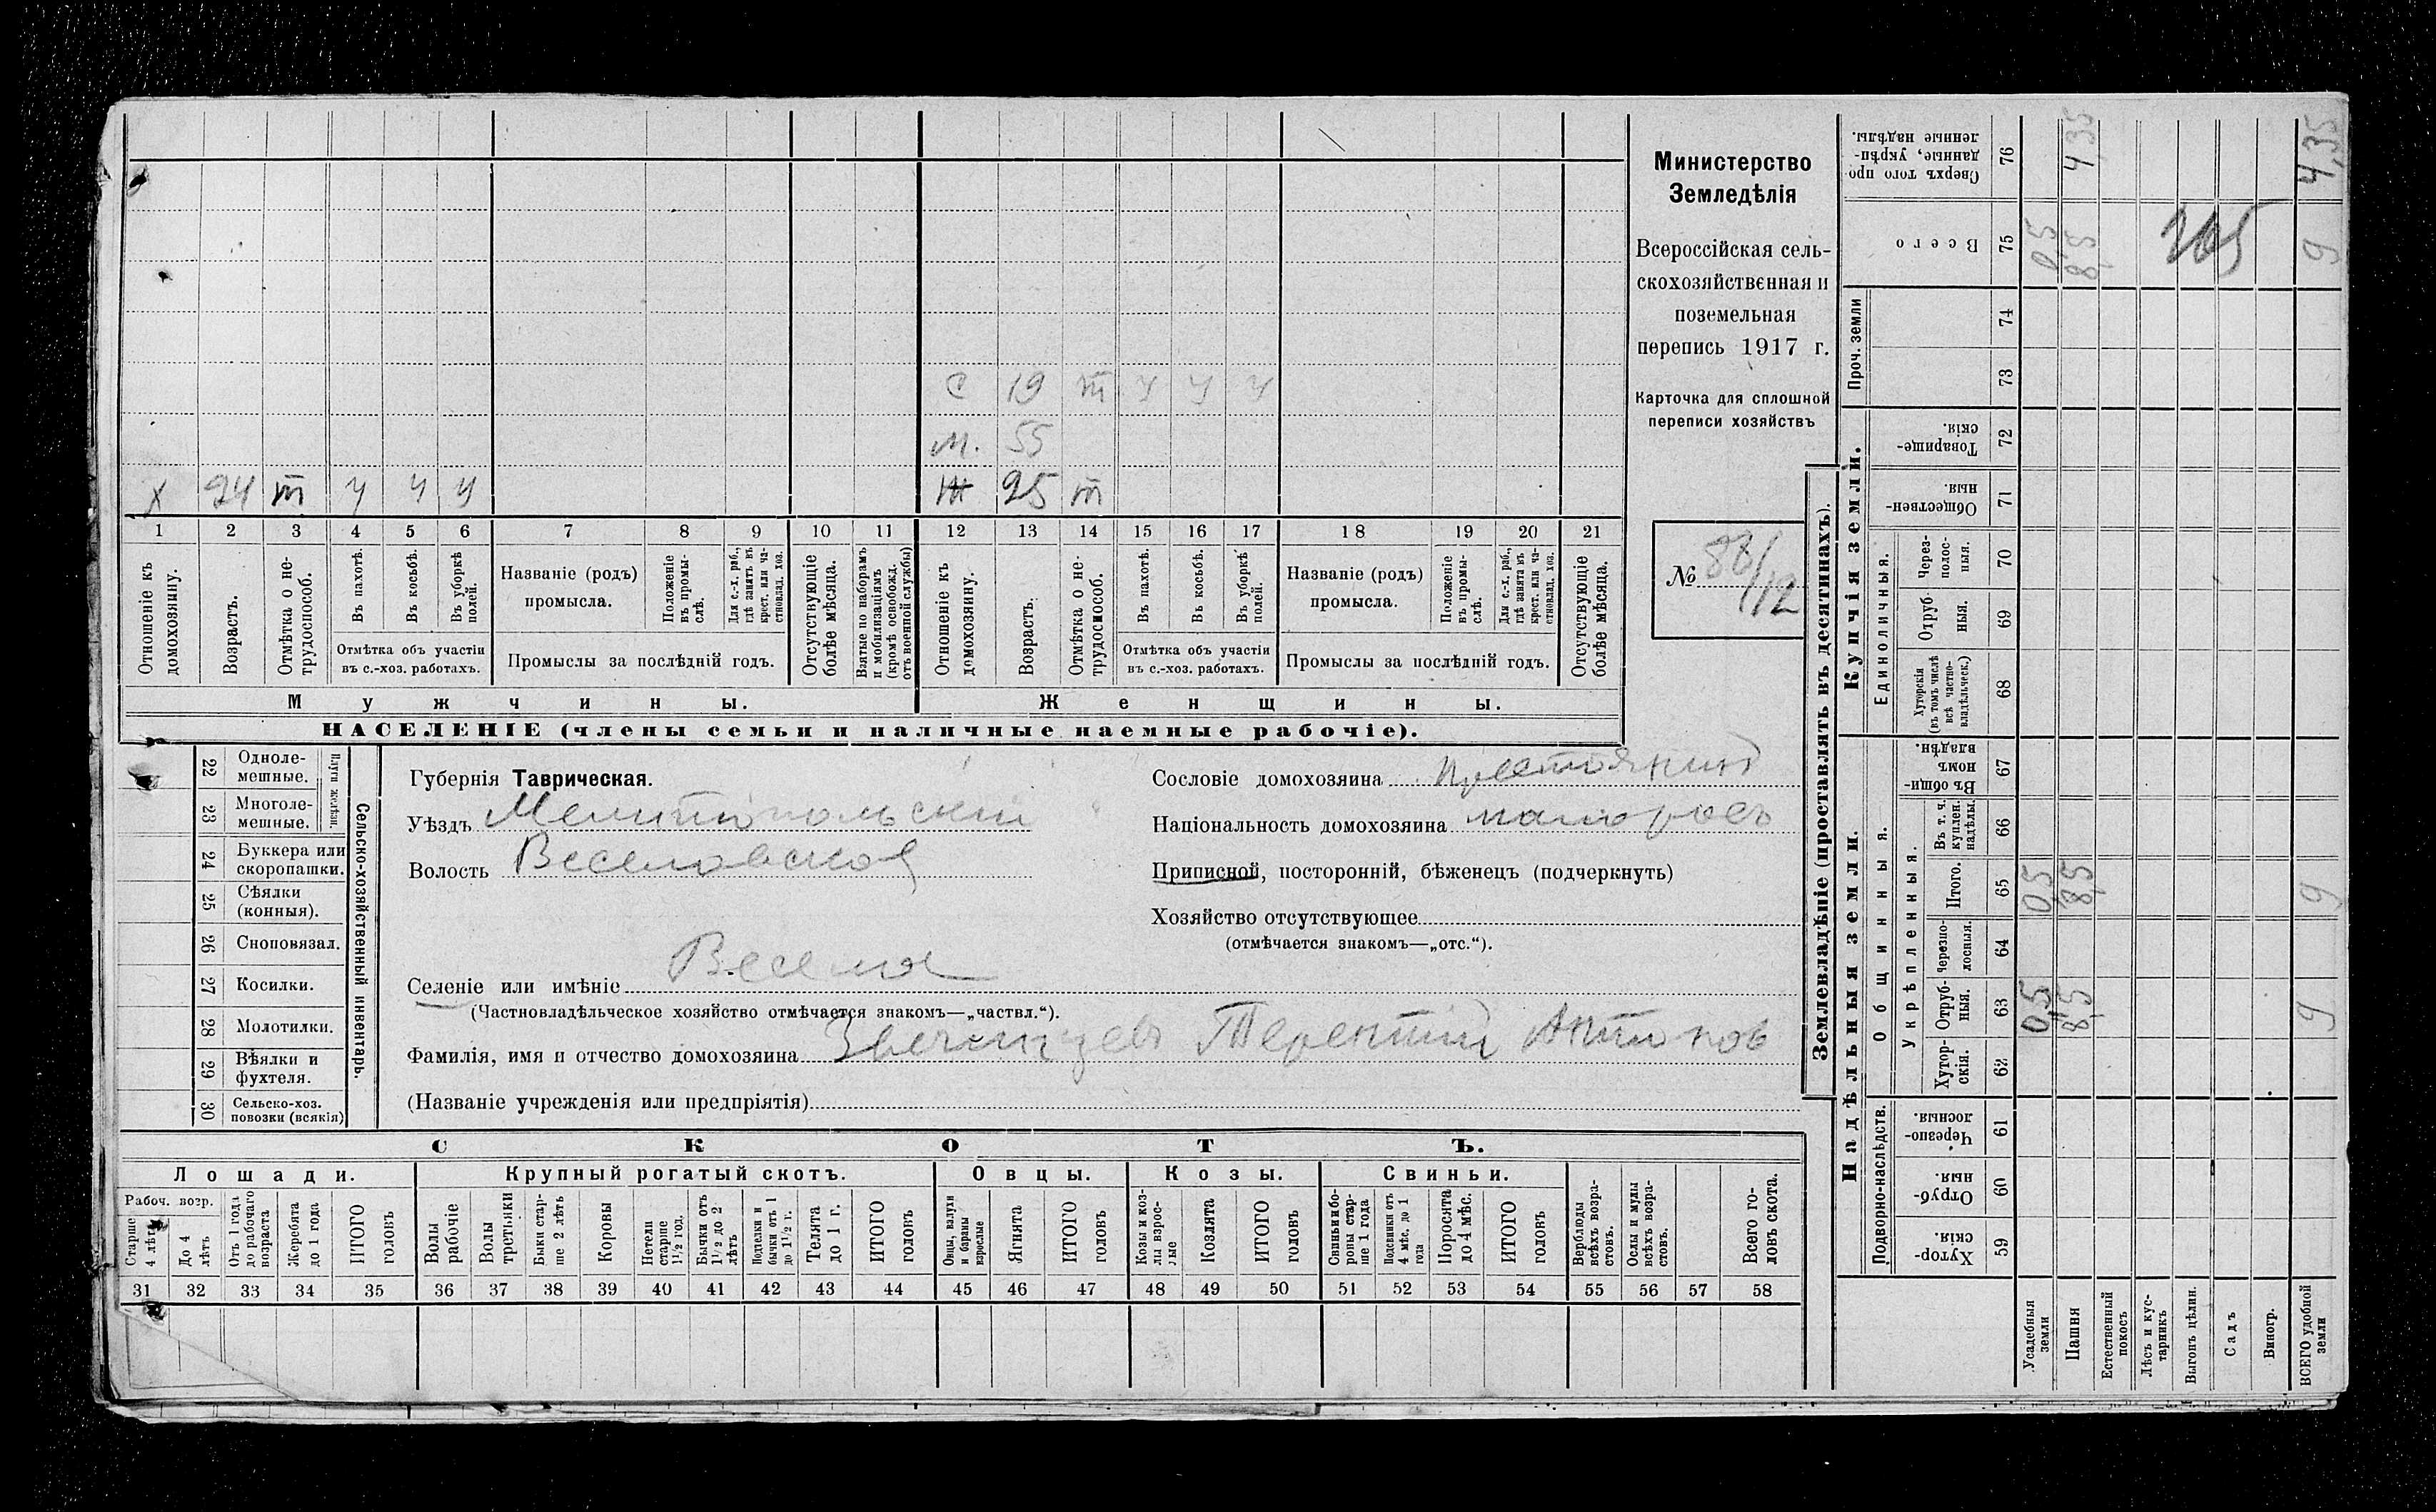 С 19 т ч ч ч
М. 55
Х 24 т ч ч ч Ж 25 т
1 2 3 4 5 6 7 8 9 10 11 12 13 14 15 16 17 18 19 20 21
Отношеніе къ домохозяину.
Возрастъ.
Отмѣтка о нетрудоспособ.
Въ пахотѣ.
Въ косьбѣ.
Въ уборкѣ полей.
Отмѣтка объ участіи
въ с.-хоз. работахъ.
Названіе (родъ)
промысла.
Положеніе въ промыслѣ.
Для с.-х. раб., гдѣ занятъ въ крест. или частновлад. хоз.
Промыслы за послѣдній годъ.
Отсутствующіе болѣе мѣсяца.
Взятые по наборамъ и мобилизаціямъ (кромѣ освобожд. отъ военной службы)
Отношеніе къ домохозяину.
Возрастъ.
Отмѣтка о нетрудоспособ.
Въ пахотѣ.
Въ косьбѣ.
Въ уборкѣ полей.
Отмѣтка объ участіи
въ с.-хоз. работахъ.
Названіе (родъ)
промысла.
Положеніе въ промыслѣ.
Для с.-х. раб., гдѣ занята въ крест. или частновлад. хоз.
Промыслы за послѣдній годъ.
Отсутствующіе болѣе мѣсяца.
Мужчины. Женщины.
НАСЕЛЕНІЕ (члены семьи и наличные наемные рабочіе).
Министерство
Земледѣлія
Всероссійская сель-
скохозяйственная и
поземельная
перепись 1917 г.
Карточка для сплошной
переписи хозяйствъ
№ 88/112
22 Одноле-
мешные.
23 Многоле-
мешные.
Плуги желѣзн.
24 Буккера или
скоропашки.
25 Сѣялки
(конныя).
26 Сноповязал.
27 Косилки.
28 Молотилки.
29 Вѣялки и
фухтеля.
30 Сельско-хоз.
повозки (всякія)
Сельско-хозяйственный инвентарь.
Губернія Таврическая.
Уѣздъ Мелитопольскій
Волость Веселовская
Селеніе или имѣніе
(Частновладѣльческое хозяйство отмѣчается знакомъ—„частвл.“).
Фамилія, имя и отчество домохозяина Терентій Антонов
(Названіе учрежденія или предпріятія)
Сословіе домохозяина крестьянин
Національность домохозяина малорос
Приписной, посторонній, бѣженецъ (подчеркнуть)
Хозяйство отсутствующее
(отмѣчается знакомъ—„отс.“).
СКОТЪ.
Лошади. Крупный рогатый скотъ. Овцы. Козы. Свиньи.
Рабоч. возр.
Старше 4 лѣтъ
До 4 лѣтъ
Отъ 1 года до рабочаго возраста
Жеребята до 1 года
ИТОГО головъ
Волы рабочіе
Волы третьяки
Быки старше 2 лѣтъ
Коровы
Нетели старше 1½ год.
Бычки отъ 1½ до 2 лѣтъ
Подтелки и бычки отъ 1 до 1½ г.
Телята до 1 г.
ИТОГО головъ
Овцы, валухи и бараны взрослые
Ягнята
ИТОГО головъ
Козы и козлы взрослые
Козлята
ИТОГО головъ
Свиньи и боровы старше 1 года
Подсвинки отъ 4 мѣс. до 1 года
Поросята до 4 мѣс.
ИТОГО головъ
Верблюды всѣхъ возрастовъ.
Ослы и мулы всѣхъ возрастовъ.
Всего головъ скота.
31 32 33 34 35 36 37 38 39 40 41 42 43 44 45 46 47 48 49 50 51 52 53 54 55 56 57 58
Землевладѣніе (проставлять въ десятинахъ).
Купчія земли.
Надѣльныя земли.
Проч. земли
Единоличныя.
Общинныя.
Укрѣпленныя.
Подворно-наслѣдств.
Сверхъ того проданные, укрѣпленные надѣлы. 76 4,35 4,35
Всего 75 0,5 8,5 9
265
74
73
Товарищескія. 72
Общественныя. 71
Черезполосныя. 70
Отрубныя. 69
Хуторскія (въ томъ числѣ всѣ частновладѣльческ.) 68
Въ общинномъ владѣн. 67
Въ т. ч. куплен. надѣлы. 66
Итого. 65 0,5 8,5 9
Черезполосныя. 64
Отрубныя. 63 0,5 8,5 9
Хуторскія. 62
Черезполосныя. 61
Отрубныя. 60
Хуторскія. 59
Усадебныя земли
Пашня
Естественный покосъ
Лѣсъ и кустарникъ
Выгонъ цѣлин.
Садъ
Виногр.
ВСЕГО удобной земли